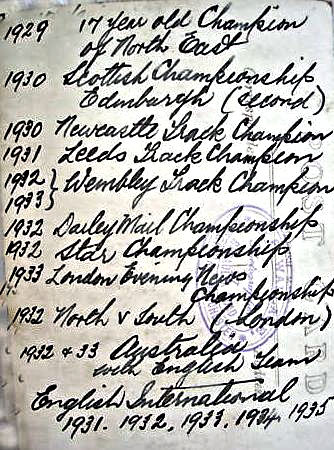 1929 17 Year old Champion
of North East
1930 Scottish Championship
Edinburgh (second)
1930 Newcastle Track Champion
1931 Leeds Track Champion
1932 } Wembley Track Champion
1933 }
1932 Dailey Mail Championship
1932 Star Championship
1933 London Evening News
Championship
1932 North v South (London)
1932 & 33 Australia
with English Team
English International
1931. 1932. 1933. 1934. 1935
POST
CARD